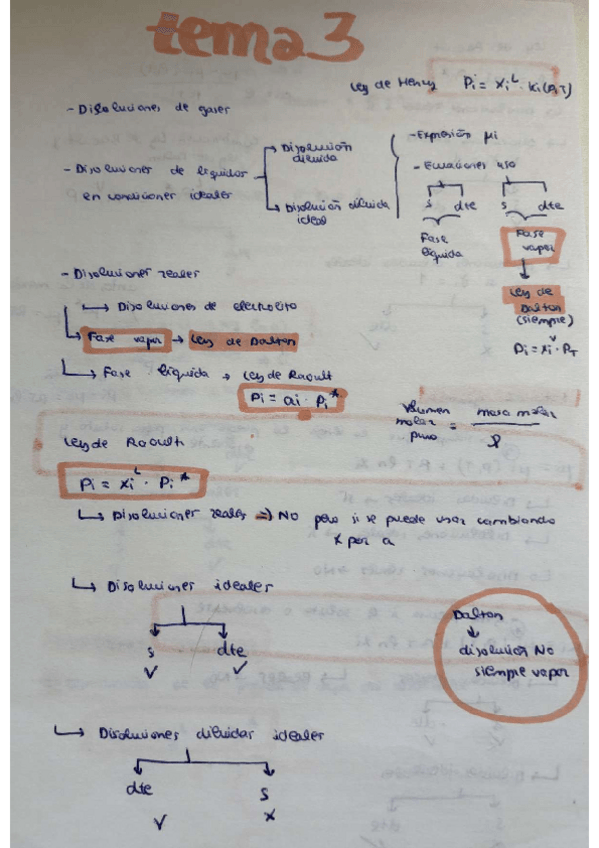 tema 3
Ley de Henry Pi = xi^L · Ki(P,T)
- Disoluciones de gases
- Disoluciones de líquidos en condiciones ideales
Disolución diluida
Disolución diluida ideal
- Expresión μi
- Ecuaciones uso
s dte s dte
Fase líquida
Fase vapor
Ley de Dalton (siempre)
Pi = xi^V · PT
- Disoluciones reales
↳ Disoluciones de electrolito
↳ Fase vapor → Ley de Dalton
↳ Fase líquida → Ley de Raoult
Pi = ai · Pi*
Volumen molar puro = masa molar / ρ
Ley de Raoult
Pi = xi^L · Pi*
↳ Disoluciones reales => No pero si se puede usar cambiando
x por a
↳ Disoluciones ideales
s dte
✓ ✓
Dalton
↓
disolución No
siempre vapor
↳ Disoluciones diluidas ideales
dte s
✓ x